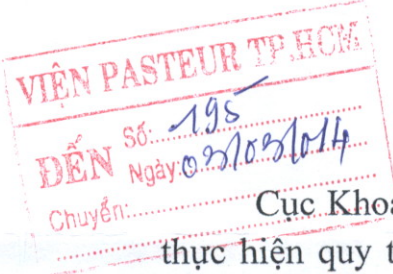 VIỆN PASTEUR TP.HCM
ĐẾN
Số: 195
Ngày: 03/03/014
Chuyển:
Cục Khoa
thực hiện quy t